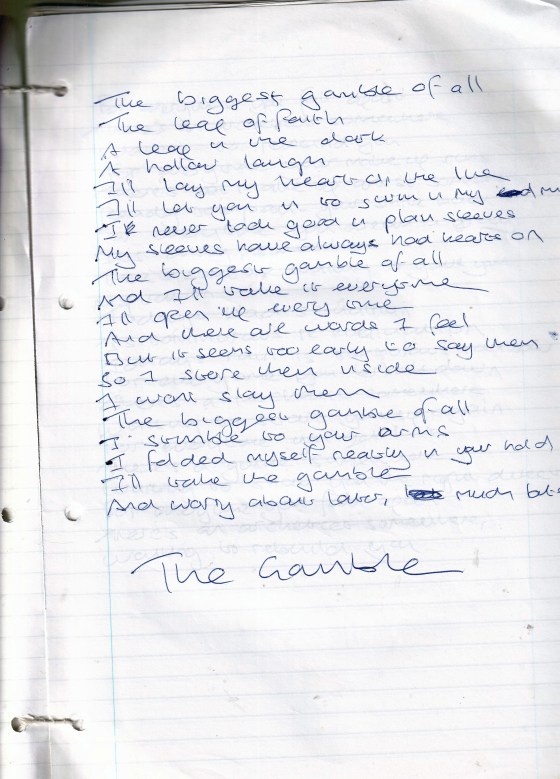 The biggest gamble of all
The leap of faith
A leap in the dark
A hollow laugh
I'll lay my heart on the line
I'll let you in to swim in my
I've never look good in plain sleeves
My sleeves have always had hearts on
The biggest gamble of all
And I'll take it everytime
I'll open up every time
And there are words I feel
But it seems too early to say them
So I store them inside
I won't stay then
The biggest gamble of all
I stumble to your arms
I folded myself neatly in your hold
I'll take the gamble
And worry about later, much
The Gamble